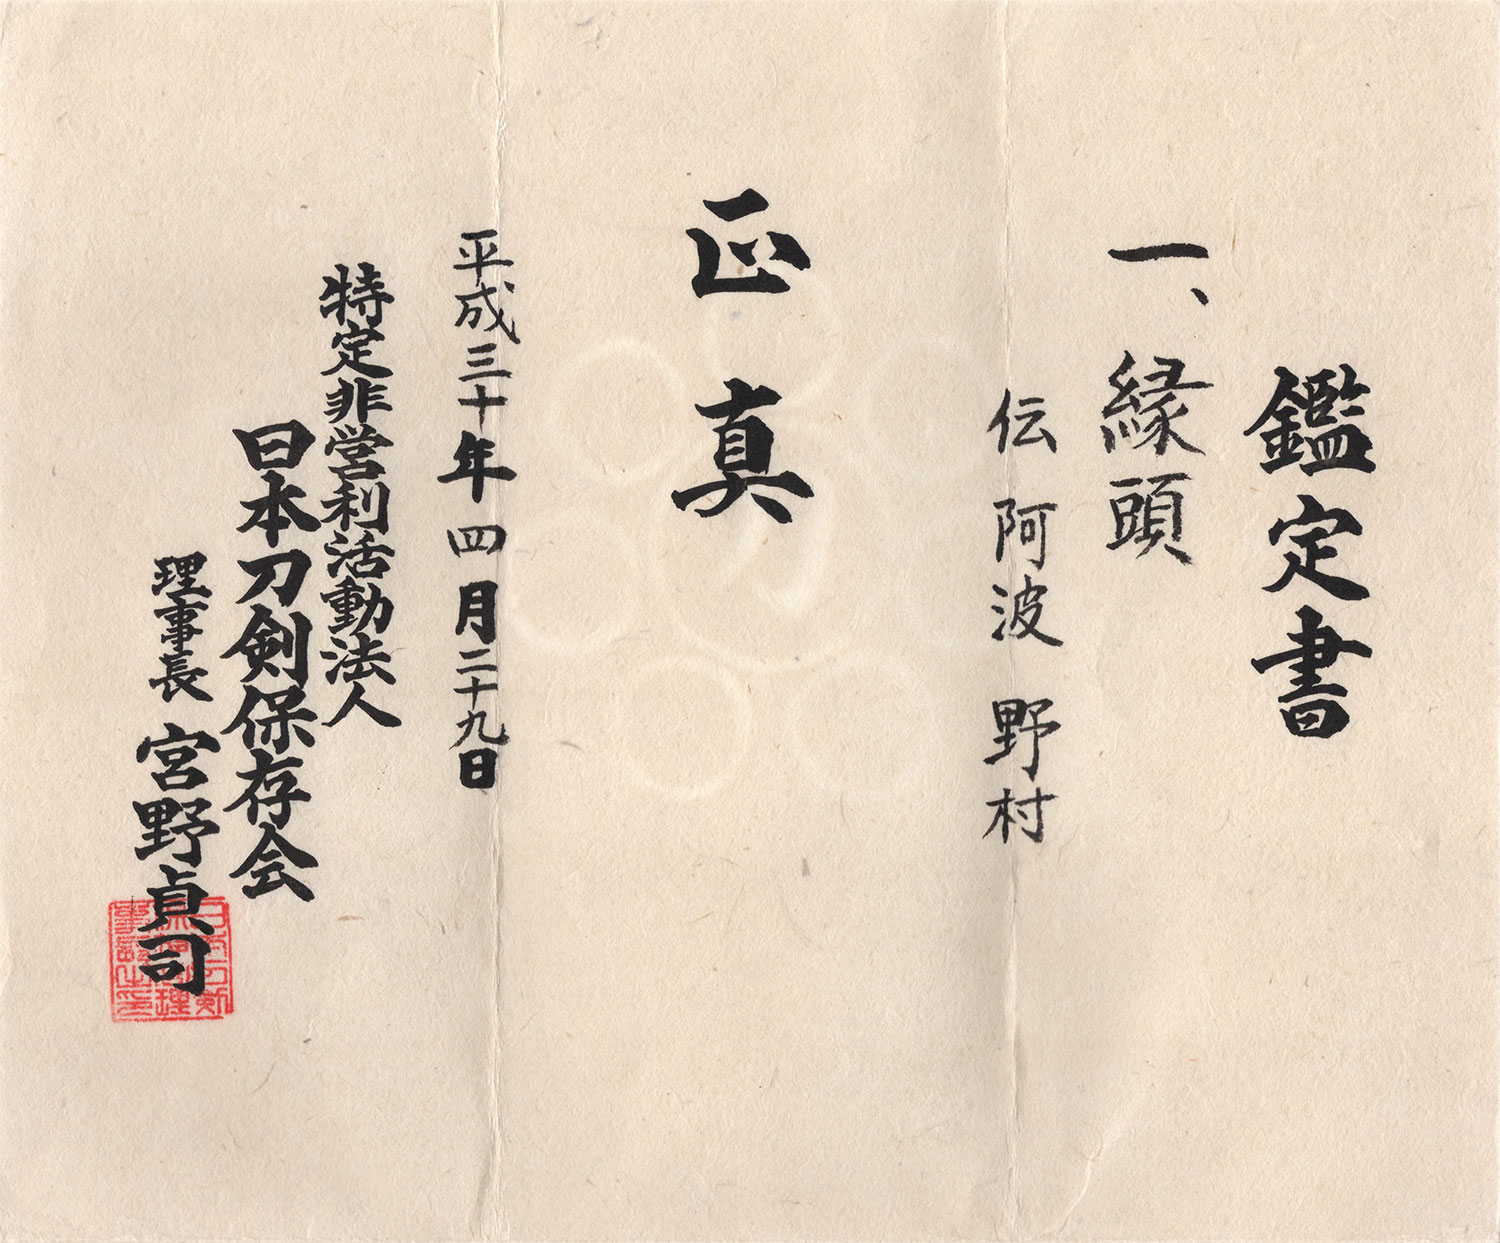 鑑定書
一、縁頭
伝 阿波 野村
正真
平成三十年四月二十九日
特定非営利活動法人
日本刀剣保存会
理事長 宮野貞司